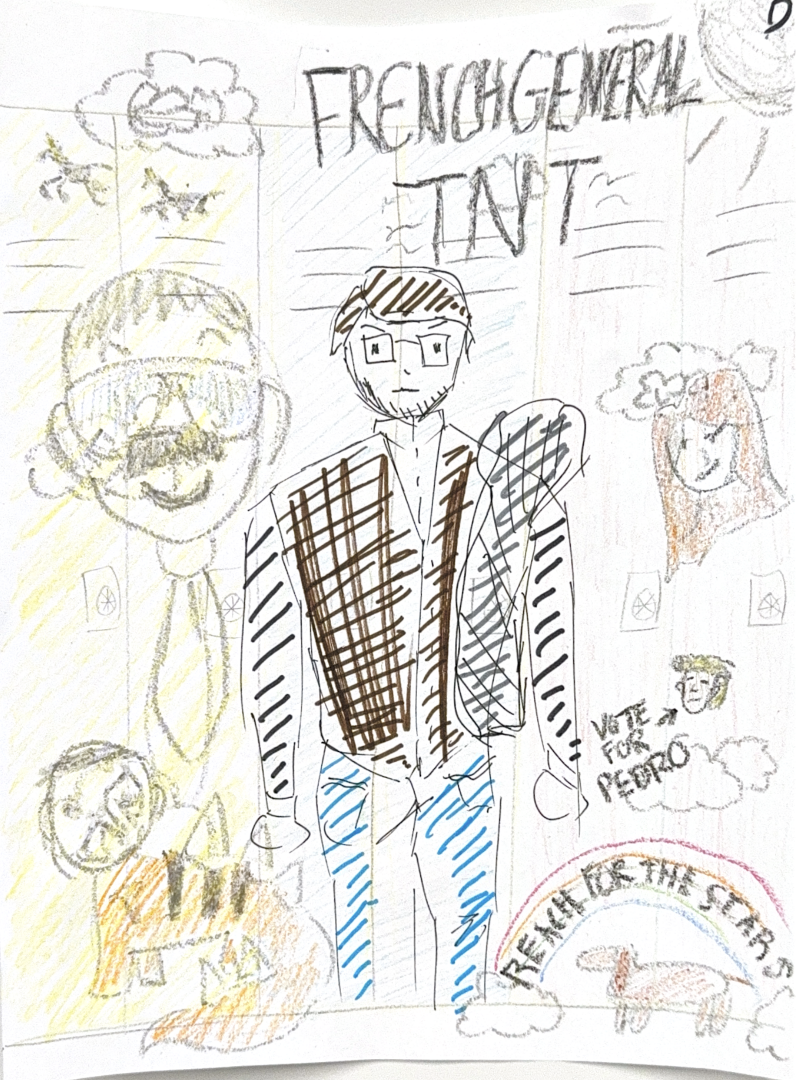 D
FRENCHGENERAL
TNT
VOTE
FOR
PEDRO
REACH FOR THE STARS